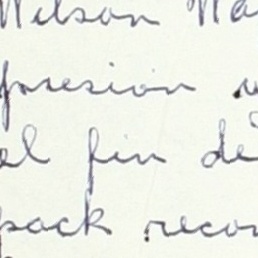 Wilson Wa
presion
el fin de
pack recor